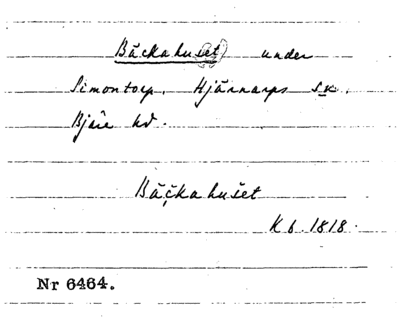 Bäckahuset under
Simontorp, Hjärnarps sk.
Bjäre hd.
Bäckahuset
Kb. 1818.
Nr 6464.